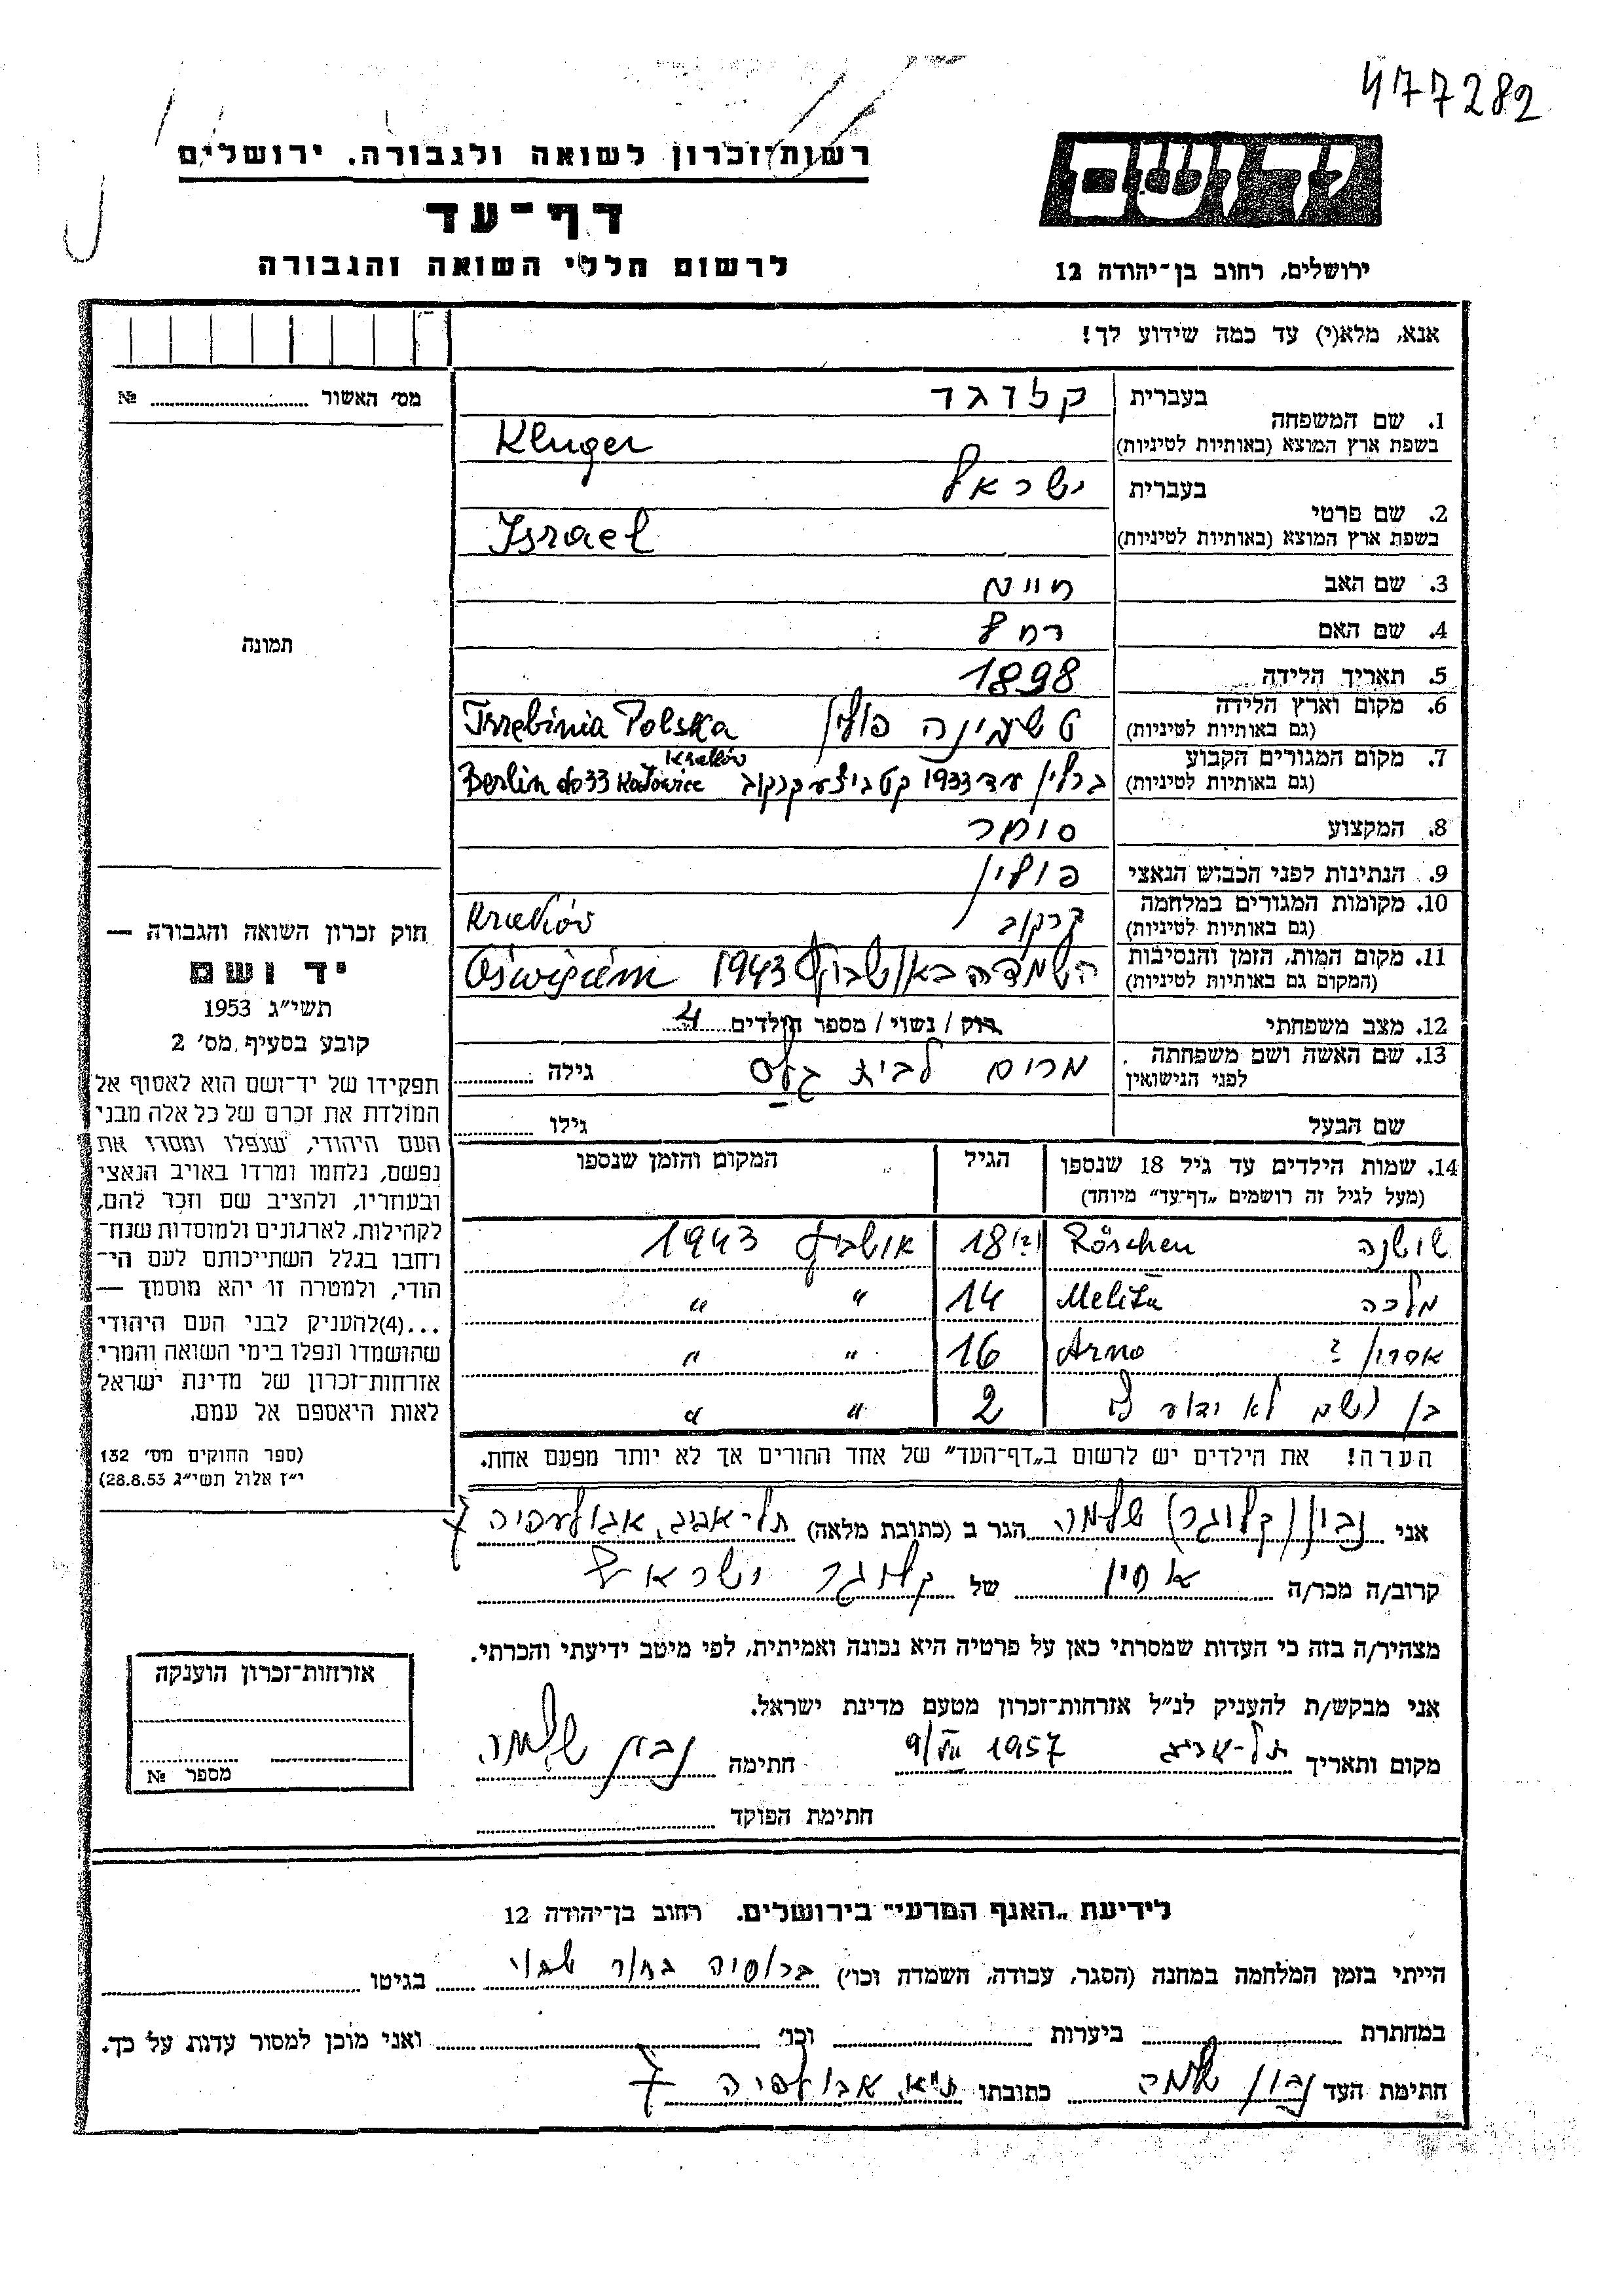 477282
יד ושם
רשות־זכרון לשואה ולגבורה. ירושלים
דף־עד
לרשום חללי השואה והגבורה
ירושלים, רחוב בן־יהודה 12
אנא, מלא(י) עד כמה שידוע לך!
מס׳ האשור ............ №
תמונה
1. שם המשפחה
בעברית קלוגר
בשפת ארץ המוצא (באותיות לטיניות) Kluger
2. שם פרטי
בעברית ישראל
בשפת ארץ המוצא (באותיות לטיניות) Israel
3. שם האב חיים
4. שם האם רחל
5. תאריך הלידה 1898
6. מקום וארץ הלידה
(גם באותיות לטיניות) טשעבינה פולין Trzebinia Polska
7. מקום המגורים הקבוע
(גם באותיות לטיניות) ברלין עד 1933 קטביצע קרקוב Berlin do 33 Katowice Kraków
8. המקצוע סוחר
9. הנתינות לפני הכבוש הנאצי פולין
10. מקומות המגורים במלחמה
(גם באותיות לטיניות) קרקוב Kraków
11. מקום המות, הזמן והנסיבות
(המקום גם באותיות לטיניות) השמדה באושביץ 1943 Oświęcim
12. מצב משפחתי רוק / נשוי / מספר הילדים 4
13. שם האשה ושם משפחתה
לפני הנישואין מרים לבית גילה ............
שם הבעל גילו ............
14. שמות הילדים עד גיל 18 שנספו
(מעל לגיל זה רושמים „דף־עד״ מיוחד)
הגיל
המקום והזמן שנספו
שושנה Röschen 18 אושביץ 1943
מלכה 14 " "
אהרון ? Arno 16 " "
בן השם לא ידוע לי 2 " "
הערה! את הילדים יש לרשום ב„דף־העד״ של אחד ההורים אך לא יותר מפעם אחת.
חוק זכרון השואה והגבורה —
יד ושם
תשי״ג 1953
קובע בסעיף מס׳ 2
תפקידו של יד־ושם הוא לאסוף אל
המולדת את זכרם של כל אלה מבני
העם היהודי, שנפלו ומסרו את
נפשם, נלחמו ומרדו באויב הנאצי
ובעוזריו, ולהציב שם וזכר להם,
לקהילות, לארגונים ולמוסדות שנח־
רחבו בגלל השתייכותם לעם הי־
הודי, ולמטרה זו יהא מוסמך —
...(4)להעניק לבני העם היהודי
שהושמדו ונפלו בימי השואה והמרי
אזרחות־זכרון של מדינת ישראל
לאות היאספם אל עמם.
(ספר החוקים מס׳ 132
י״ז אלול תשי״ג 28.8.53)
אני נבון (קלוגר) שלמה הגר ב (כתובת מלאה) תל-אביב, אבולעפיה 7
קרוב/ה מכר/ה אחין של קלוגר ישראל
מצהיר/ה בזה כי העדות שמסרתי כאן על פרטיה היא נכונה ואמיתית, לפי מיטב ידיעתי והכרתי.
אני מבקש/ת להעניק לנ״ל אזרחות־זכרון מטעם מדינת ישראל.
מקום ותאריך תל-אביב 9/VII 1957 חתימה נבון שלמה
חתימת הפוקד
אזרחות־זכרון הוענקה
מספר №
לידיעת „האגף המדעי״ בירושלים. רחוב בן־יהודה 12
הייתי בזמן המלחמה במחנה (הסגר, עבודה, השמדה וכו׳) ברוסיה בתור שבוי בגיטו
במחתרת ביערות וכו׳ ואני מוכן למסור עדות על כך.
חתימת העד נבון שלמה כתובתו ת״א, אבולעפיה 7